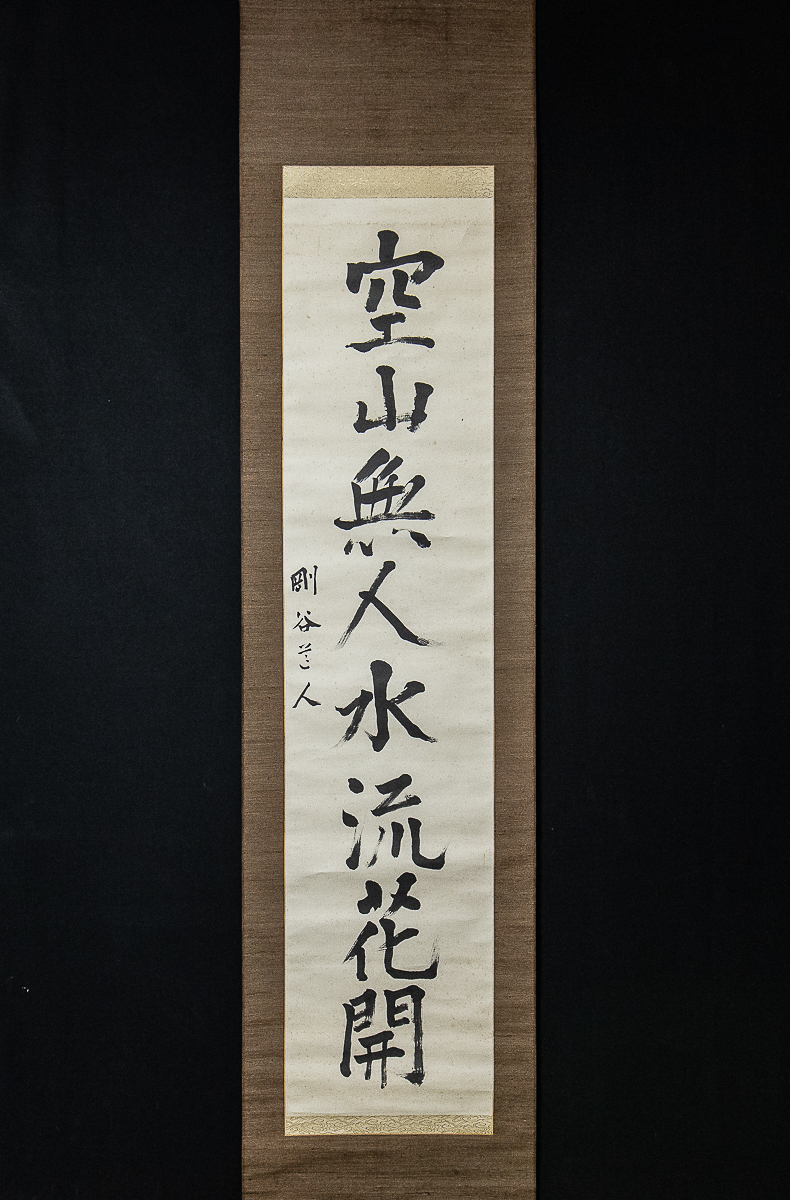 空山無人水流花開
剛谷芒人